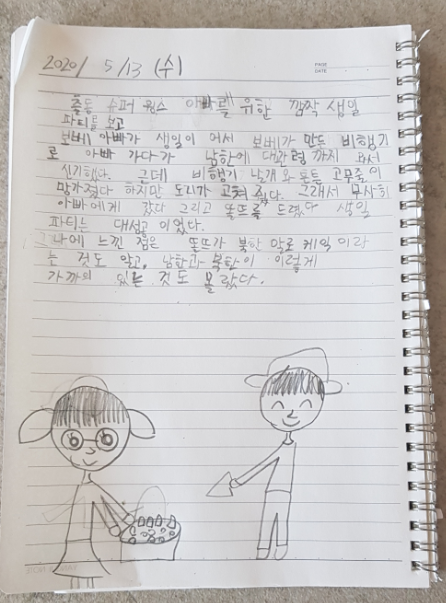 2020/ 5/13 (수)
PAGE
DATE
출동 슈퍼윙스 아빠를 위한 깜짝 생일
파티를 보고
보베 아빠가 생일이어서 보베가 만든 비행기
로 아빠 가다가 남한에 대관령 까지 와서
신기했다. 그데 비행기 날개와 몸통 고무줄이
망가졌다 하지만 도리가 고쳐 줬다. 그래서 무사히
아빠에게 갔다 그리고 또뜨를 드렸다 생일
파티는 대성공 이었다.
느낀 점은 또뜨가 북한 말로 케익이라
는 것도 알고, 남한과 북한이 이렇게
가까이 있는 것도 몰랐다.